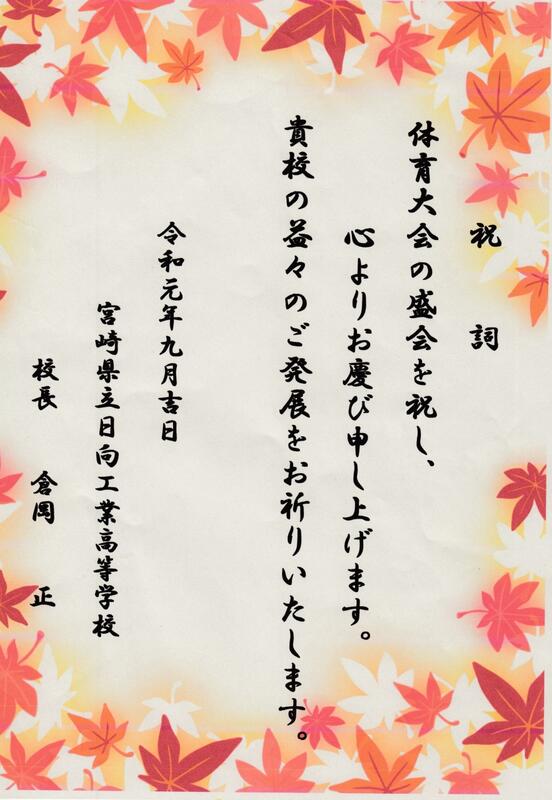 祝詞
体育大会の盛会を祝し、
心よりお慶び申し上げます。
貴校の益々のご発展をお祈りいたします。
令和元年九月吉日
宮崎県立日向工業高等学校
校長 倉岡 正